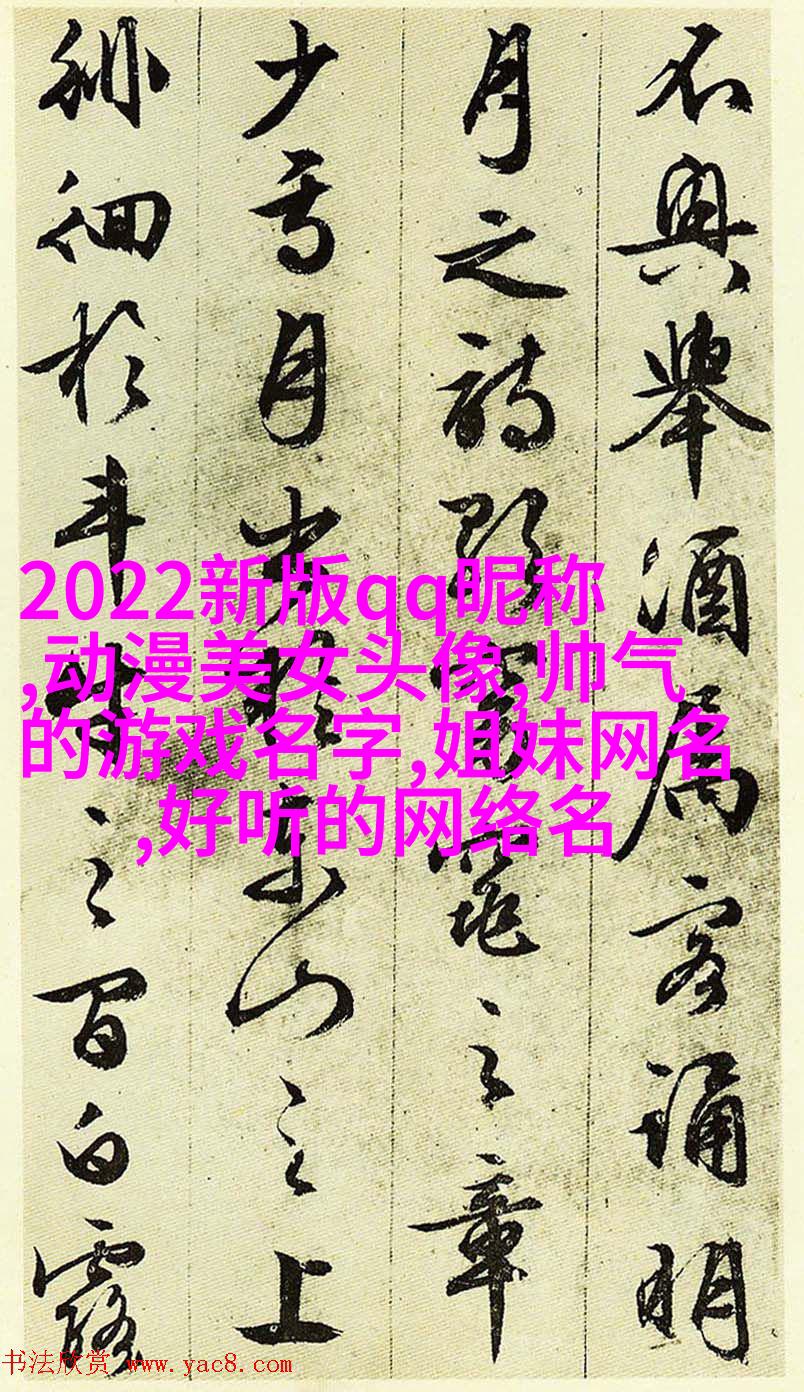 不興舉酒屬客誦明
月之詩歌窈窕之章
少焉月出於東山之上
徘徊於斗牛之間白露
2022新版qq昵称
,动漫美女头像,帅气
的游戏名字,姐妹网名
,好听的网络名
书法欣赏 www.yac8.com